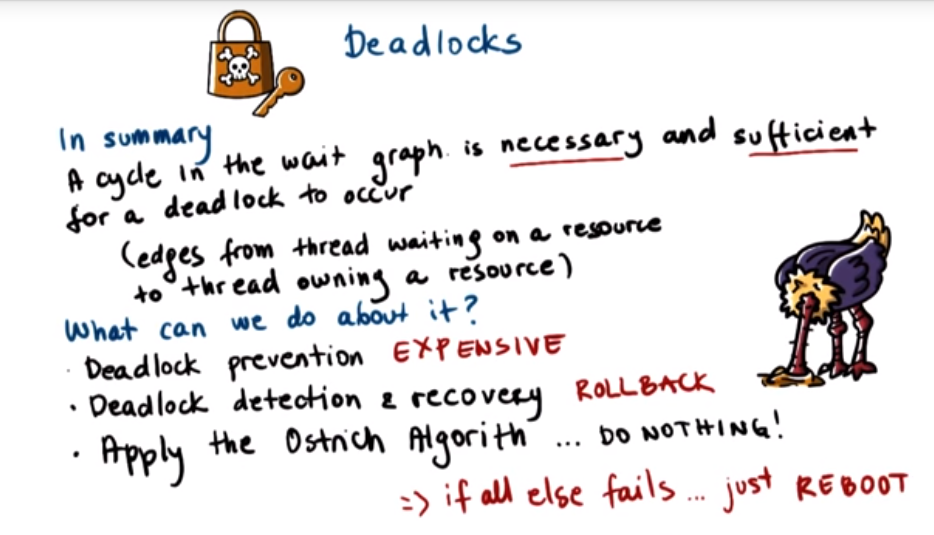 Deadlocks
In summary
A cycle in the wait graph is necessary and sufficient
for a deadlock to occur
(edges from thread waiting on a resource
to thread owning a resource)
What can we do about it?
· Deadlock prevention EXPENSIVE
· Deadlock detection & recovery ROLLBACK
· Apply the Ostrich Algorith ... DO NOTHING!
=> if all else fails ... just REBOOT